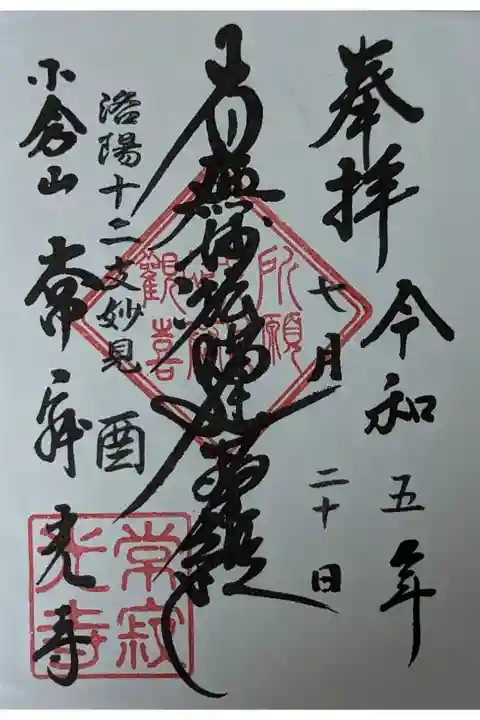 奉拝
令和五年
七月
二十日
南無妙法蓮華経
洛陽十二支妙見 酉
小倉山 常寂光寺
所願
觀喜
常寂
光寺